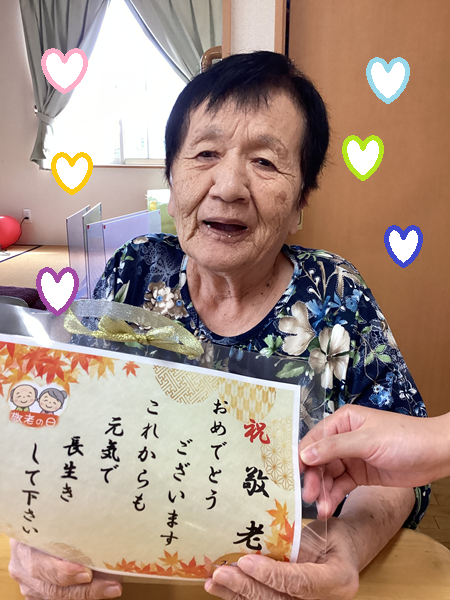 祝 敬老
おめでとう
ございます
これからも
元気で
長生き
して下さい
敬老の日